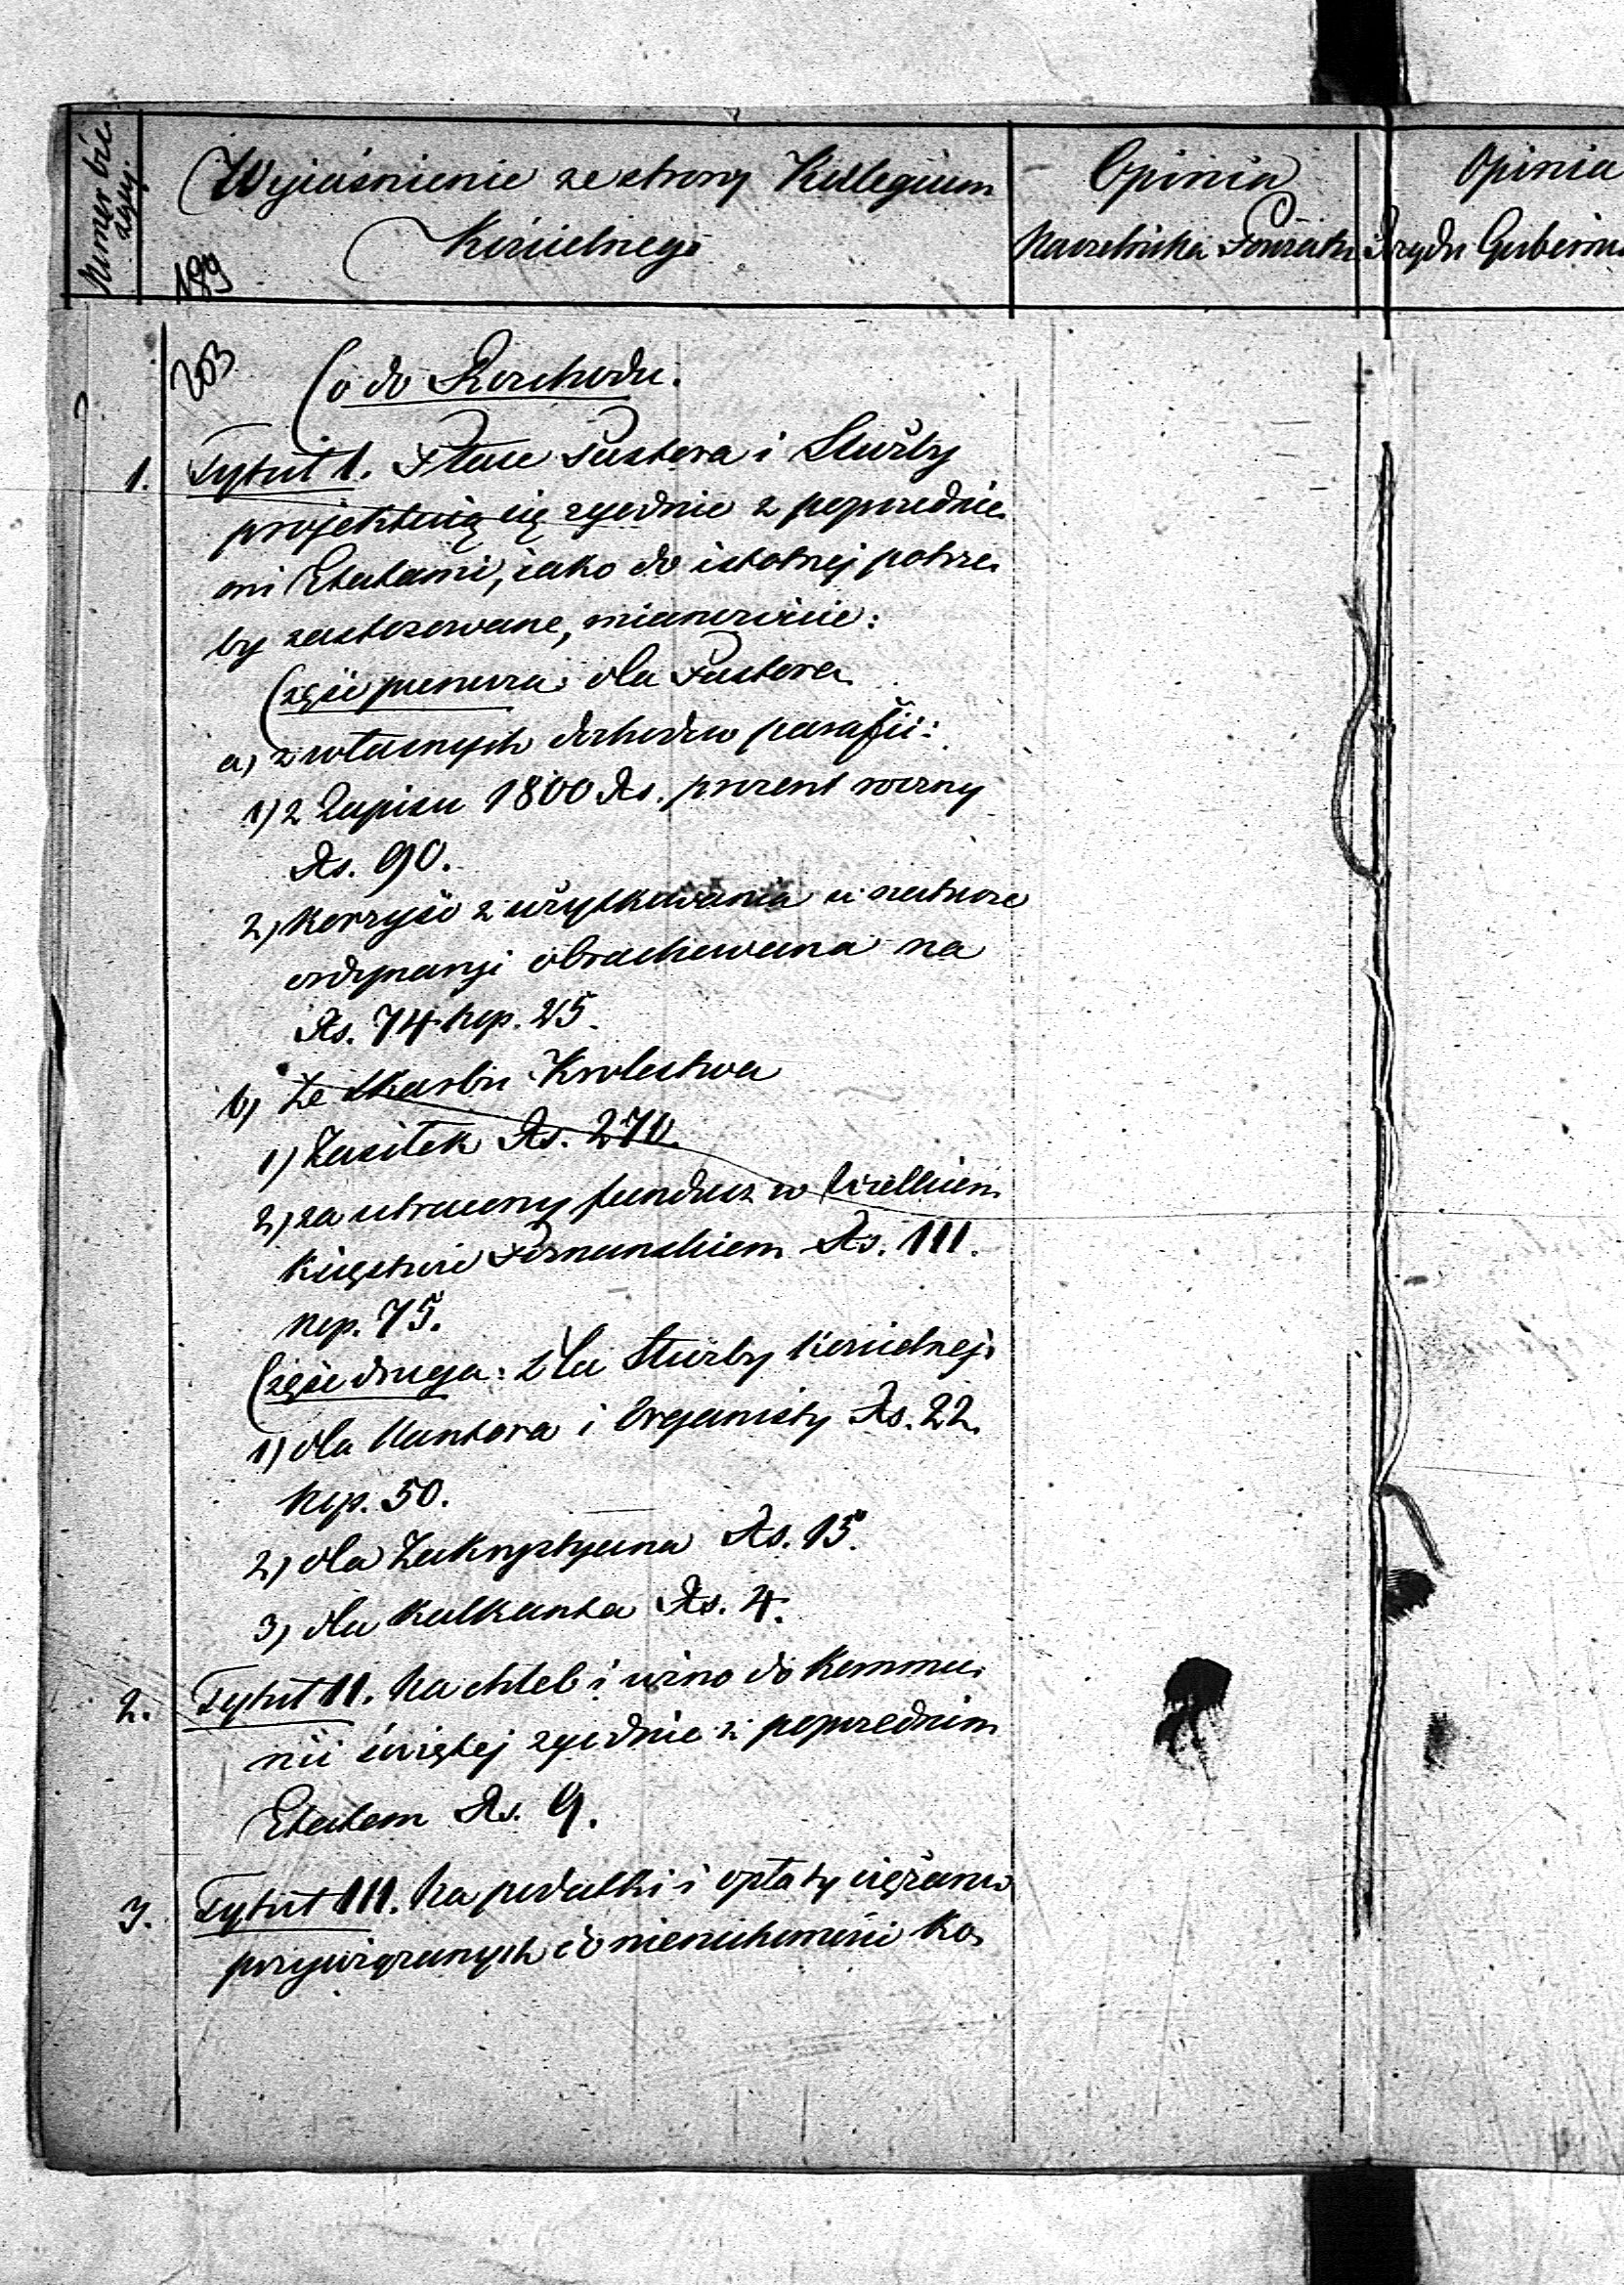 Numer bie-
żący.
Wyjaśnienie ze strony Kollegium
Kościelnego
Opinia
Naczelnika Powiatu
Opinia
Rządu Gubern
189
203
Co do Rozchodu.
1. Tytuł I. Płace Pastora i Służby
projektują się zgodnie z poprzednie-
mi Etatami, jako do istotnej potrze-
by zastosowane, mianowicie:
Część pierwsza dla Pastora
a, z własnych dochodów parafii:
1) z Zapisu 1800 Rs. procent roczny
Rs. 90.
2, korzyść z użytkowania w naturze
ordynarji obrachowana na
Rs. 74 kop. 25.
b, Ze Skarbu Królestwa
1) Zasiłek Rs. 270.
2, za utracony fundusz w Wielkiem
Księstwie Poznańskiem Rs. 111.
kop. 75.
Część druga: dla Służby Kościelnej
1) dla Kantora i Organisty Rs. 22.
kop. 50.
2, dla Zakrystyana Rs. 15.
3, dla Kalkanta Rs. 4.
2. Tytuł II. Na chleb i wino do Kommu-
nii świętej zgodnie z poprzednim
Etatem Rs. 9.
3. Tytuł III. Na podatki i opłaty ciężarów
przywiązanych do nieruchomości Ko-